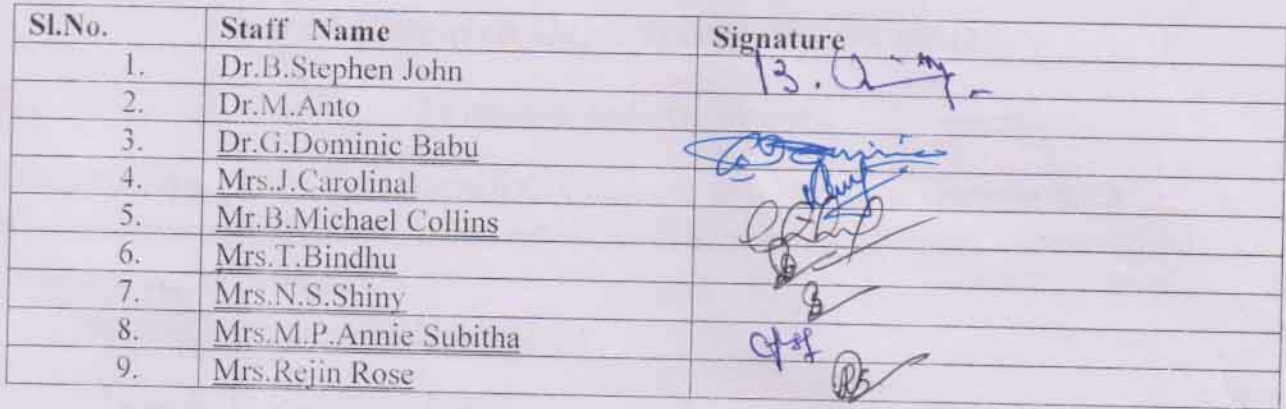 Sl.No. Staff Name Signature
1. Dr.B.Stephen John
2. Dr.M.Anto
3. Dr.G.Dominic Babu
4. Mrs.J.Carolinal
5. Mr.B.Michael Collins
6. Mrs.T.Bindhu
7. Mrs.N.S.Shiny
8. Mrs.M.P.Annie Subitha
9. Mrs.Rejin Rose